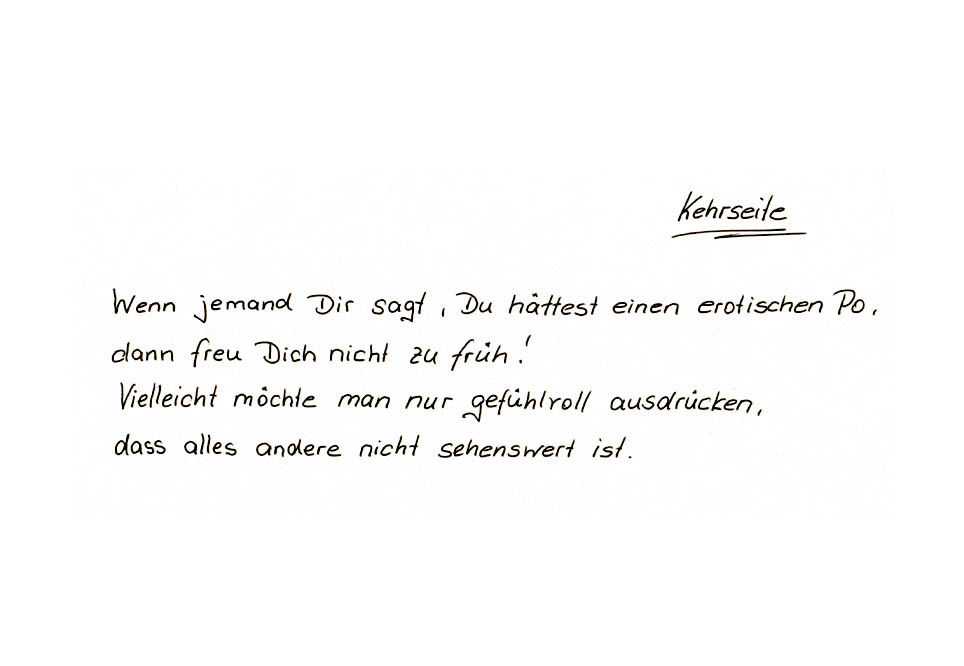 Kehrseite
Wenn jemand Dir sagt, Du hättest einen erotischen Po,
dann freu Dich nicht zu früh!
Vielleicht möchte man nur gefühlvoll ausdrücken,
dass alles andere nicht sehenswert ist.